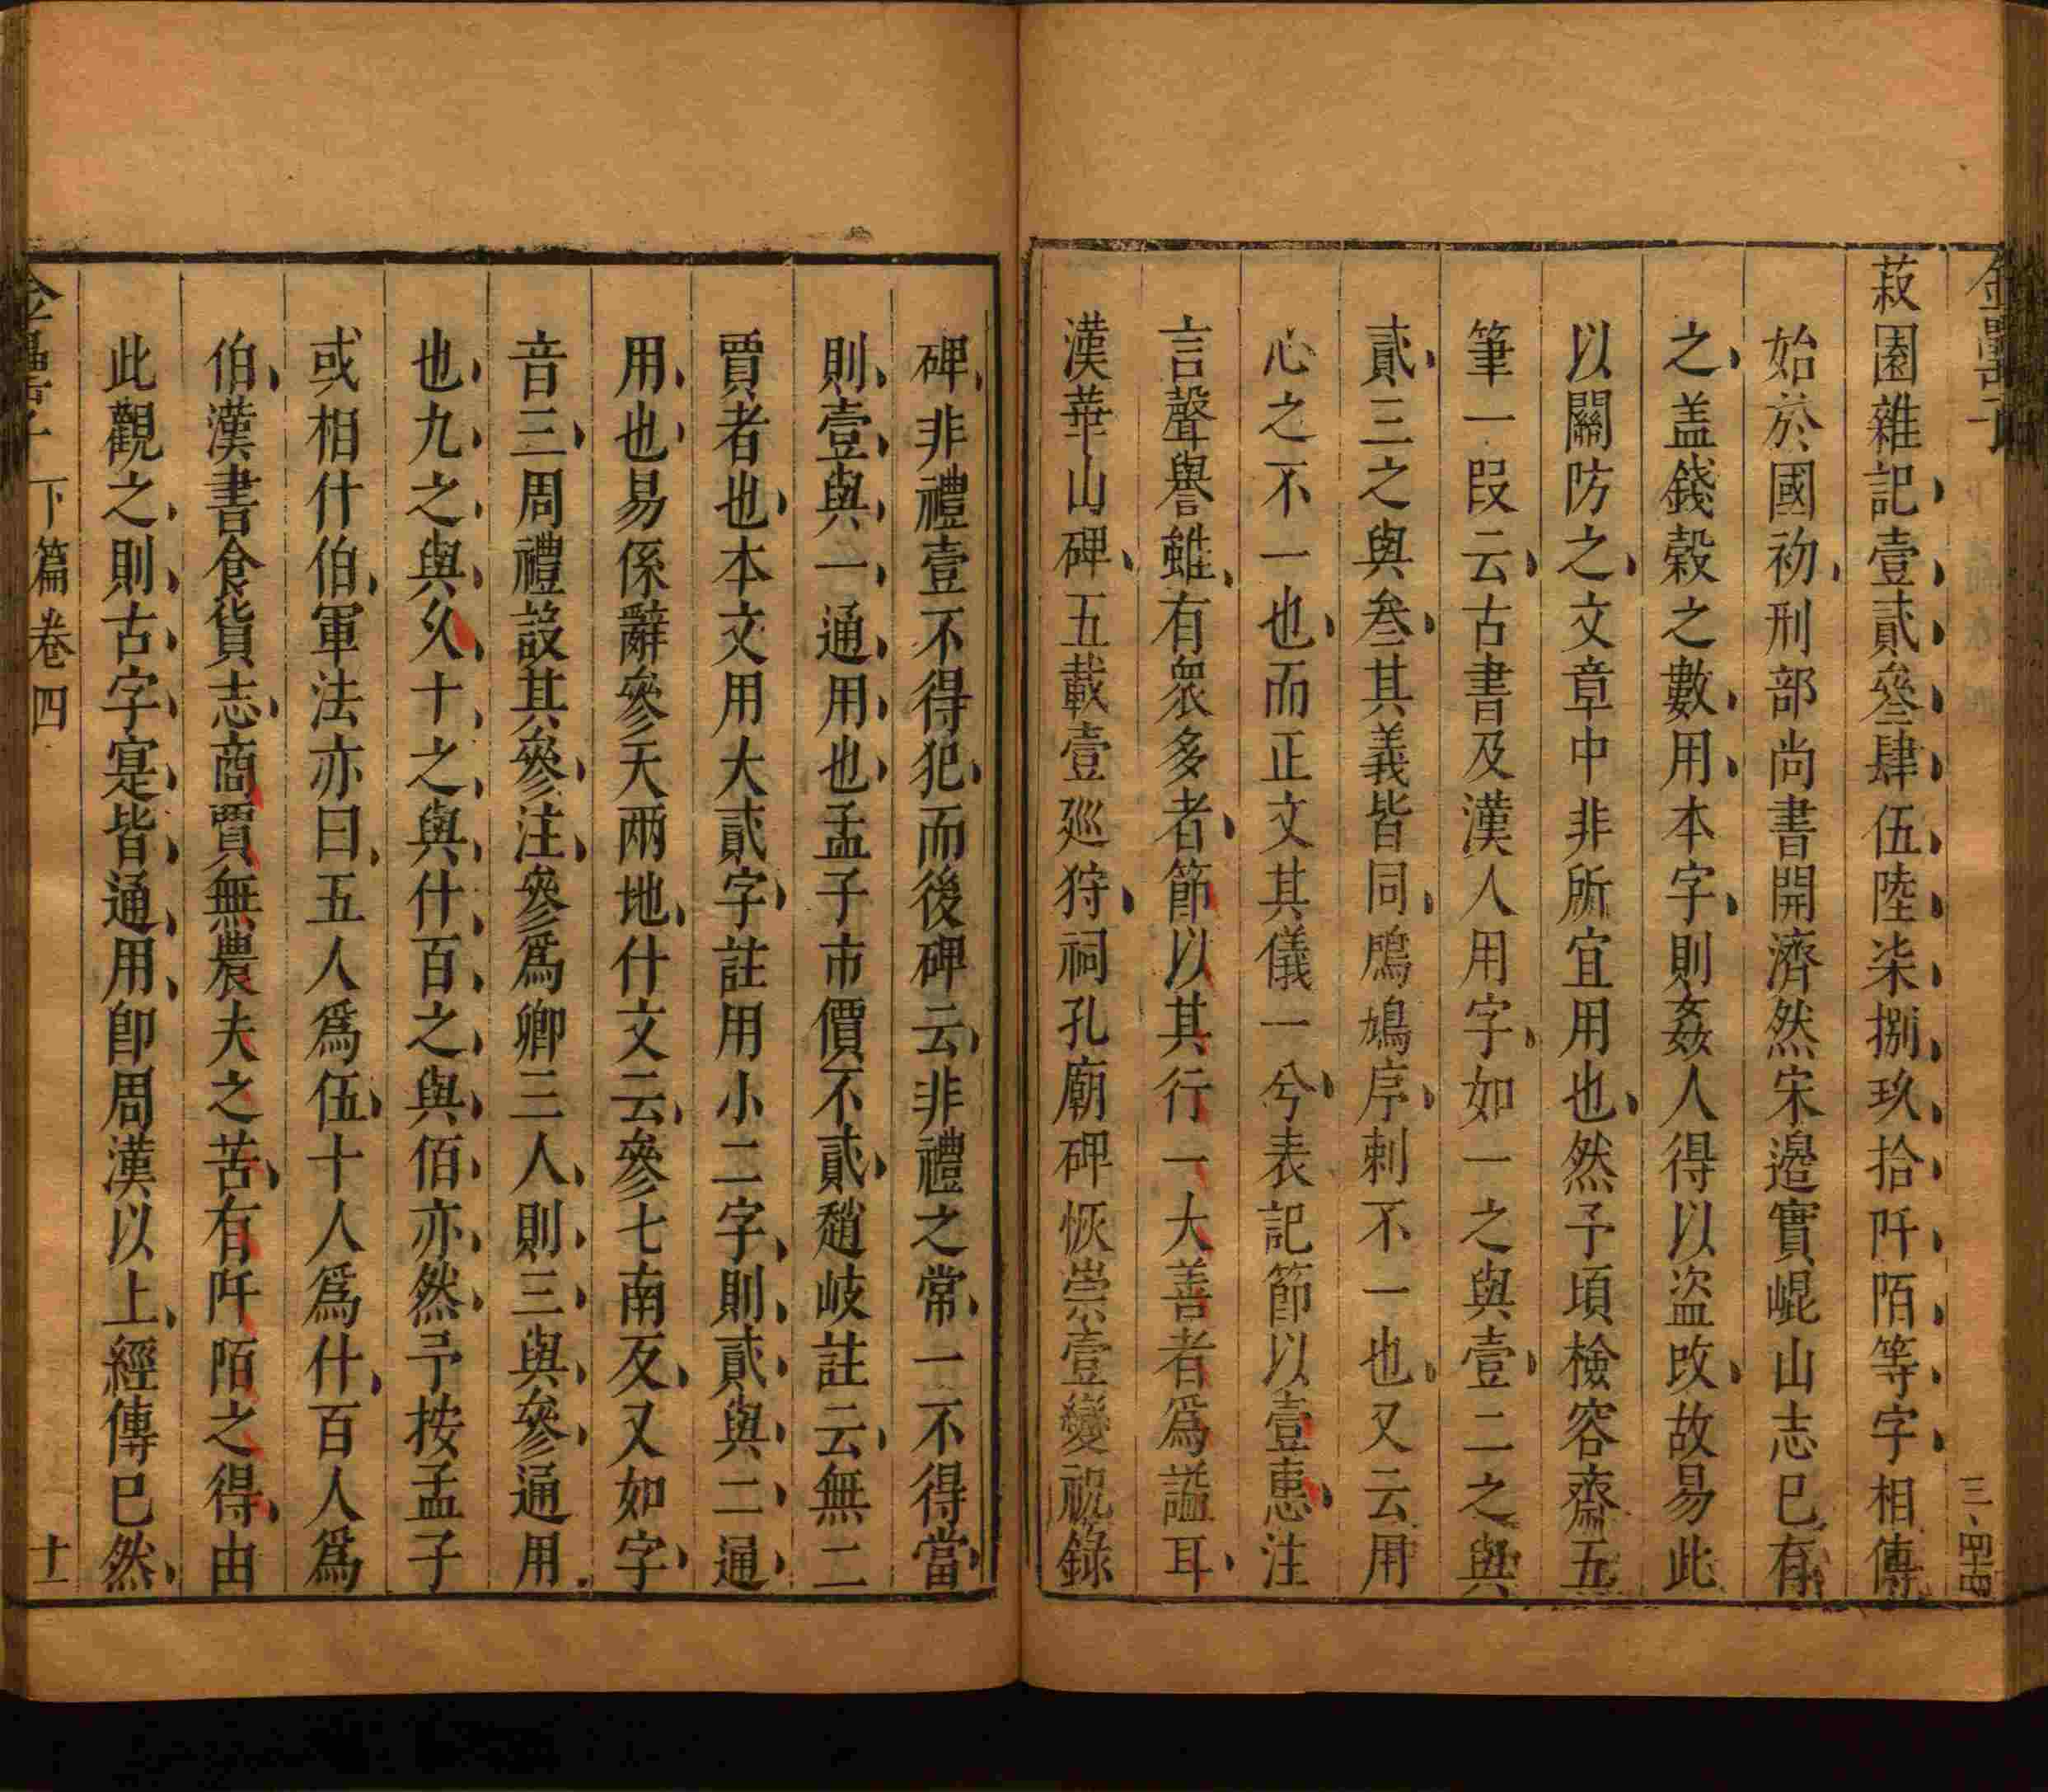 金罍子
三、四十四
菽園雜記壹貳叄肆伍陸柒捌玖拾阡陌等字相傳
始於國初刑部尚書開濟然宋邉實崐山志巳有
之盖錢榖之數用本字則姦人得以盗改故易此
以關防之文章中非所宜用也然予頃檢容齋五
筆一叚云古書及漢人用字如一之與壹二之與
貳三之與叁其義皆同鳲鳩序刺不一也又云用
心之不一也而正文其儀一兮表記節以壹惠注
言聲譽雖有衆多者節以其行一大善者爲謚耳
漢華山碑五載壹廵狩祠孔廟碑恢崇壹變祝錄
碑非禮壹不得犯而後碑云非禮之常一不得當
則壹與一通用也孟子市價不貳趙岐註云無二
賈者也本文用大貳字註用小二字則貳與二通
用也易係辭參天两地什文云參七南反又如字
音三周禮設其參注參爲卿三人則三與參通用
也九之與久十之與什百之與佰亦然予按孟子
或相什伯軍法亦曰五人爲伍十人爲什百人爲
伯漢書食貨志商賈無農夫之苦有阡陌之得由
此觀之則古字寔皆通用卽周漢以上經傳巳然
金罍子 下篇卷四 十一